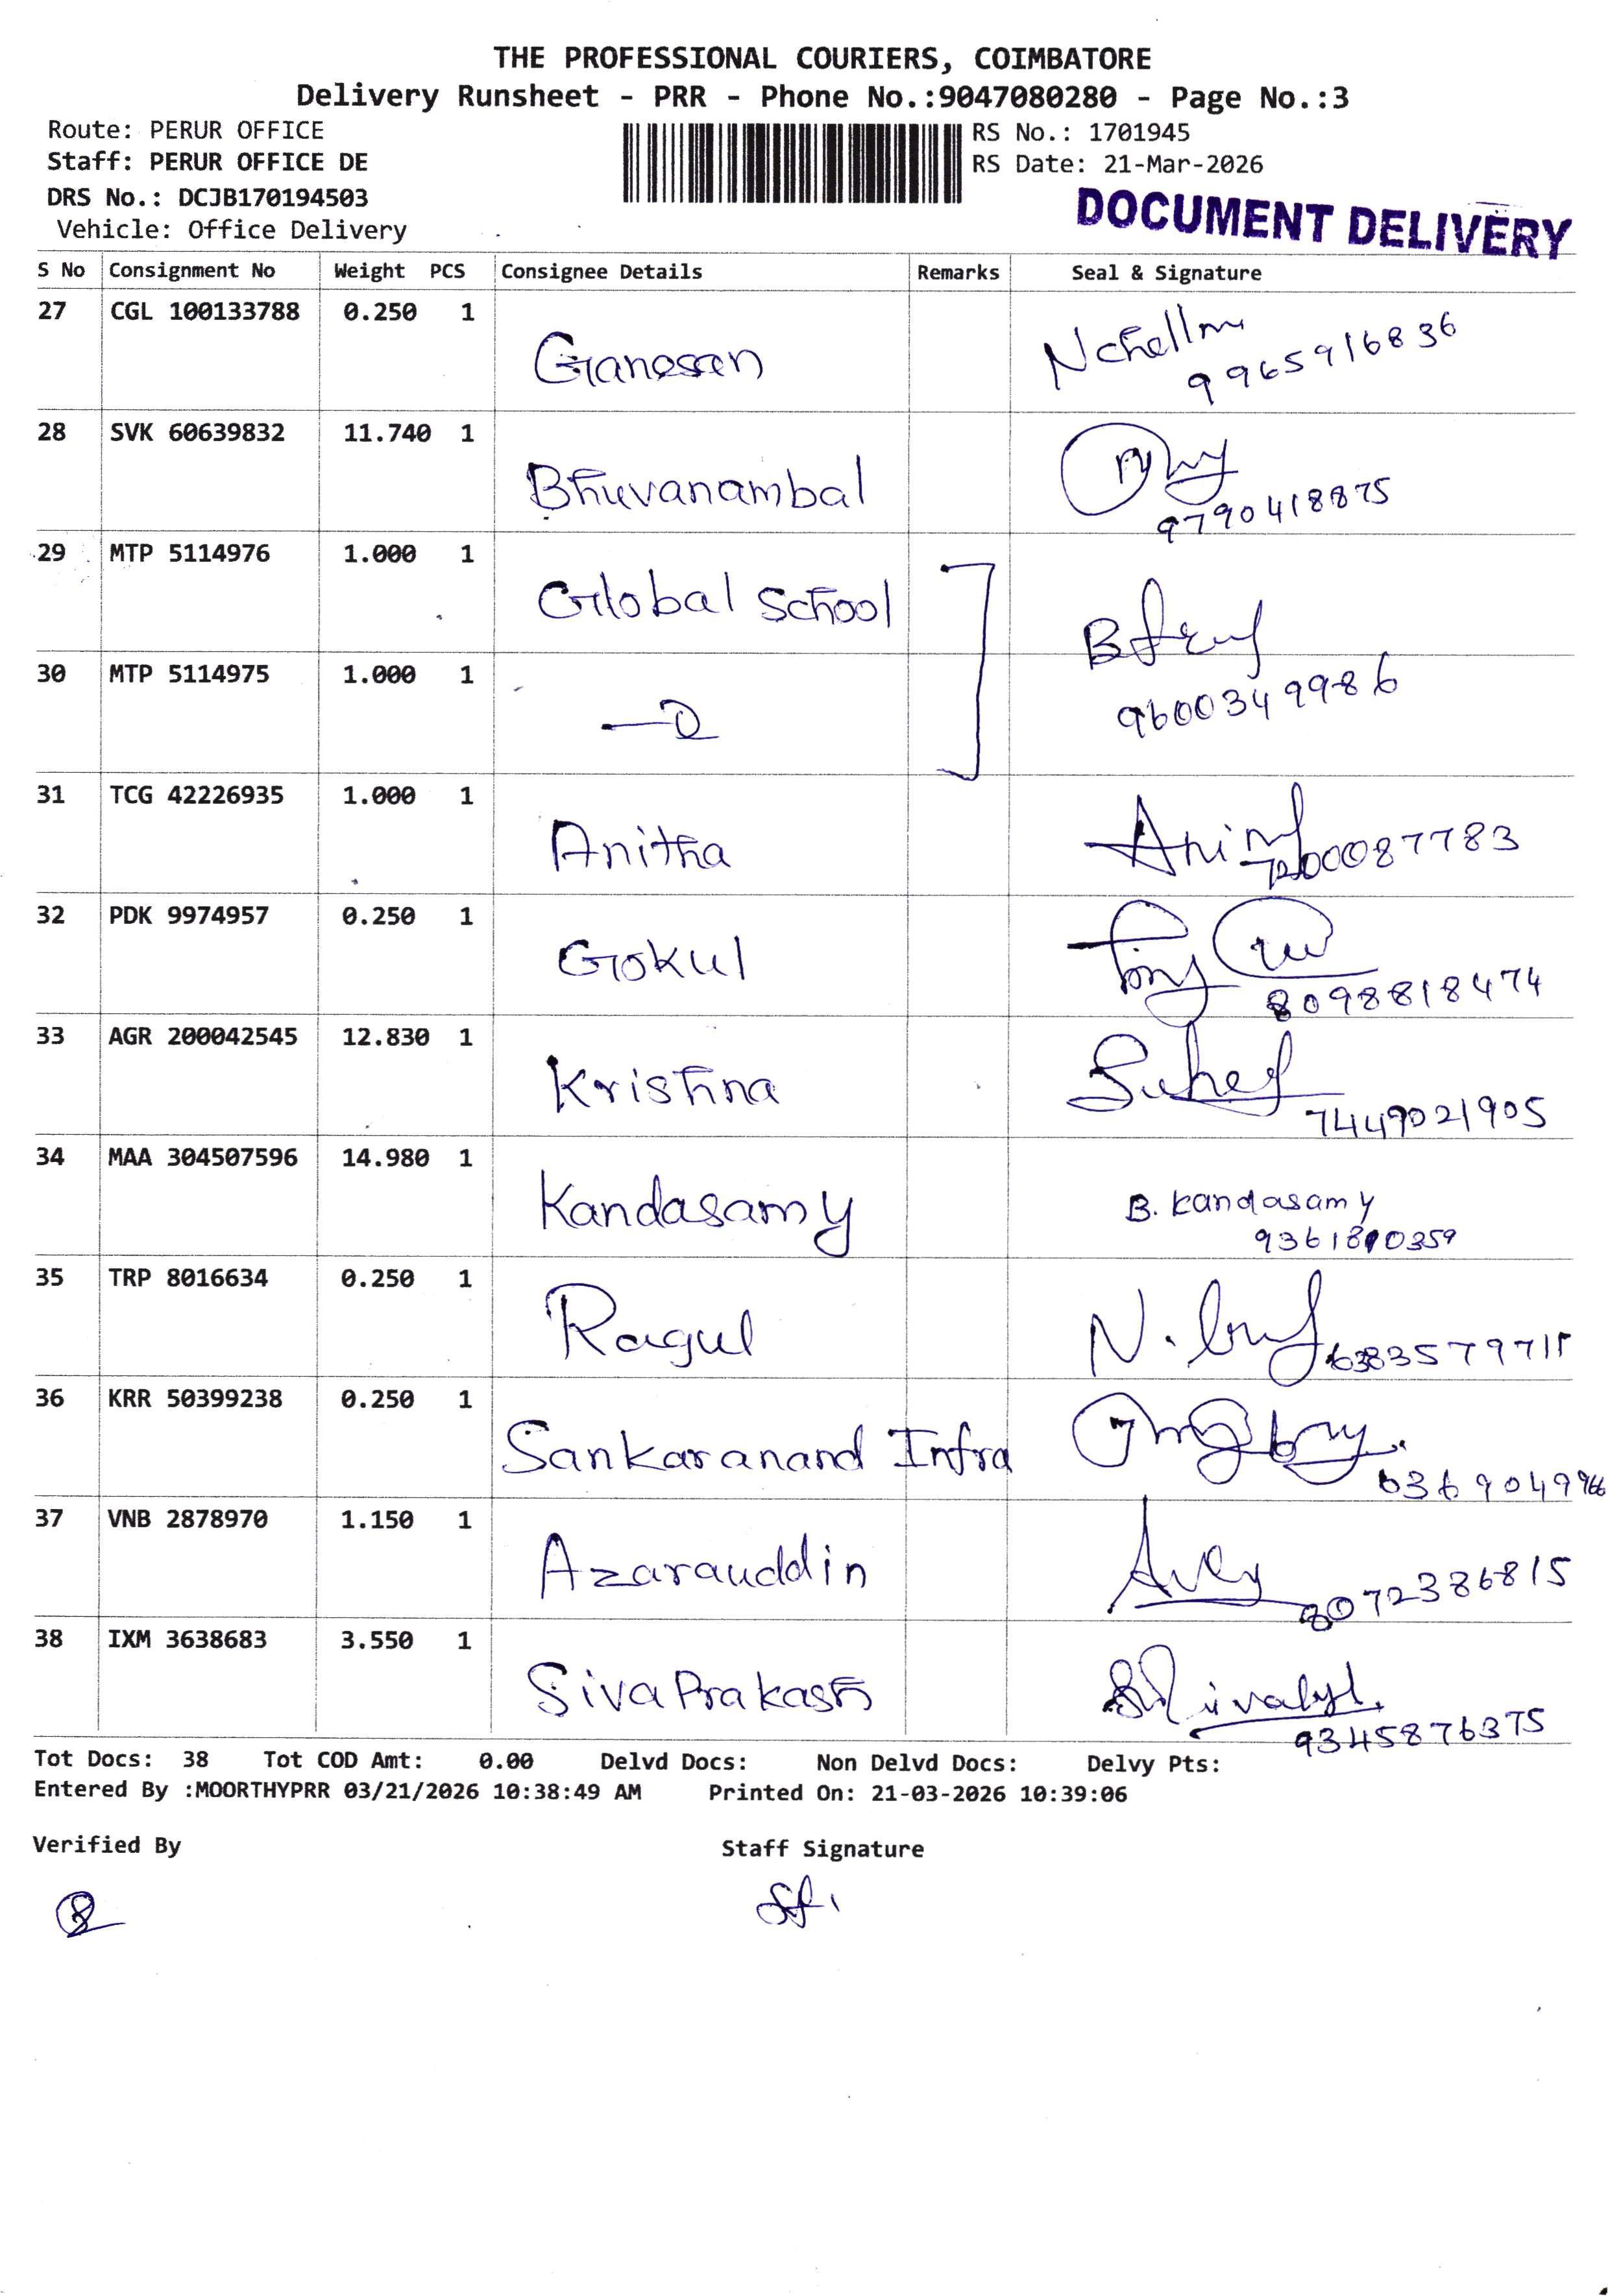 THE PROFESSIONAL COURIERS, COIMBATORE
Delivery Runsheet - PRR - Phone No.:9047080280 - Page No.:3
Route: PERUR OFFICE
RS No.: 1701945
Staff: PERUR OFFICE DE
RS Date: 21-Mar-2026
DRS No.: DCJB170194503
Vehicle: Office Delivery
DOCUMENT DELIVERY
S No Consignment No Weight PCS Consignee Details Remarks Seal & Signature
27 CGL 100133788 0.250 1 Ganesan
9965916836
28 SVK 60639832 11.740 1 Bhuvanambal
9790418875
29 MTP 5114976 1.000 1 Global School
30 MTP 5114975 1.000 1
9600349986
31 TCG 42226935 1.000 1 Anitha
7200087783
32 PDK 9974957 0.250 1 Gokul
8098818474
33 AGR 200042545 12.830 1 Krishna
7449021905
34 MAA 304507596 14.980 1 Kandasamy B. Kandasamy
35 TRP 8016634 0.250 1 Ragul
36 KRR 50399238 0.250 1 Sankaranand Infra
37 VNB 2878970 1.150 1 Azarauddin
8072386815
38 IXM 3638683 3.550 1 Siva Prakash
9345876375
Tot Docs: 38 Tot COD Amt: 0.00 Delvd Docs: Non Delvd Docs: Delvy Pts:
Entered By :MOORTHYPRR 03/21/2026 10:38:49 AM Printed On: 21-03-2026 10:39:06
Verified By Staff Signature